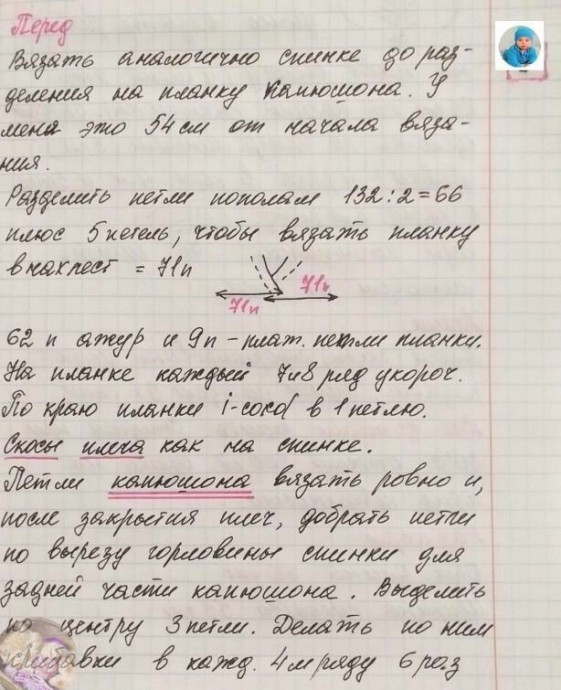 Перед
Вязать аналогично спинке до раз-
деления на планку капюшона. У
меня это 54 см от начала вяза-
ния.
Разделить петли пополам 132:2=66
плюс 5 петель, чтобы вязать планку
внахлест = 71п
71п
71п
62 п ажур и 9п - плат. петли планки.
На планке каждый 7и8 ряд укороч.
По краю планки i-cord в 1 петлю.
Скосы плеча как на спинке.
Петли капюшона вязать ровно и,
после закрытия плеч, добрать петли
по вырезу горловины спинки для
задней части капюшона. Выделить
по центру 3 петли. Делать по ним
прибавки в кажд. 4м ряду 6 раз